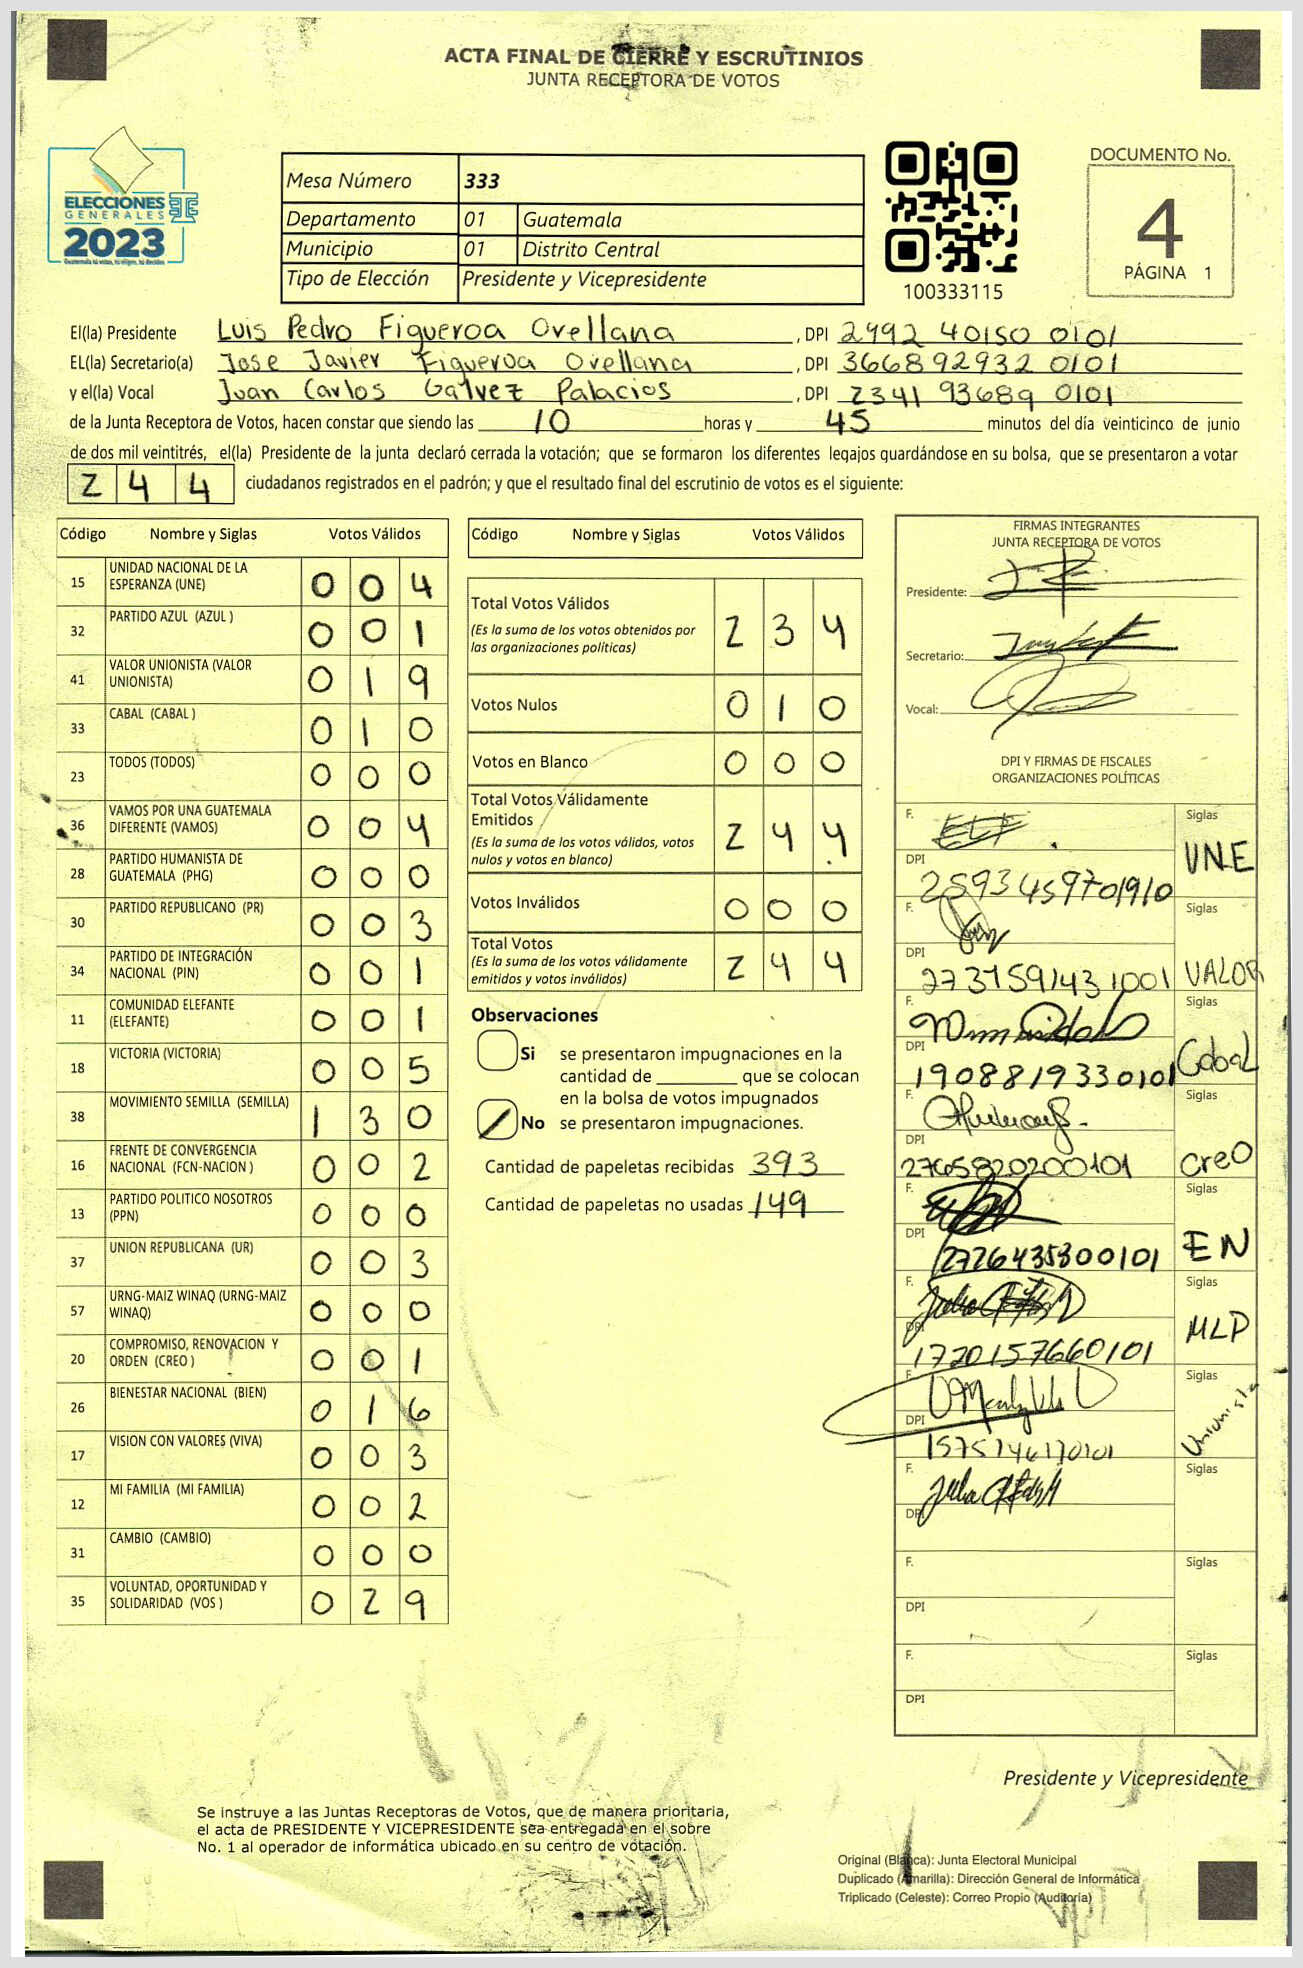 ACTA FINAL DE CIERRE Y ESCRUTINIOS
JUNTA RECEPTORA DE VOTOS
ELECCIONES
GENERALES
2023
Mesa Número 333
Departamento 01 Guatemala
Municipio 01 Distrito Central
Tipo de Elección Presidente y Vicepresidente
100333115
DOCUMENTO No.
4
PÁGINA 1
El(la) Presidente Luis Pedro Figueroa Orellana, DPI 2992 40150 0101
EL(la) Secretario(a) Jose Javier Figueroa Orellana, DPI 366892932 0101
y el(la) Vocal Juan Carlos Galvez Palacios, DPI 2341 93689 0101
de la Junta Receptora de Votos, hacen constar que siendo las 10 horas y 45 minutos del día veinticinco de junio
de dos mil veintitrés, el(la) Presidente de la junta declaró cerrada la votación; que se formaron los diferentes legajos guardándose en su bolsa, que se presentaron a votar
244 ciudadanos registrados en el padrón; y que el resultado final del escrutinio de votos es el siguiente:
Código Nombre y Siglas Votos Válidos
15 UNIDAD NACIONAL DE LA ESPERANZA (UNE) 004
32 PARTIDO AZUL (AZUL ) 001
41 VALOR UNIONISTA (VALOR UNIONISTA) 019
33 CABAL (CABAL ) 010
23 TODOS (TODOS) 000
36 VAMOS POR UNA GUATEMALA DIFERENTE (VAMOS) 004
28 PARTIDO HUMANISTA DE GUATEMALA (PHG) 000
30 PARTIDO REPUBLICANO (PR) 003
34 PARTIDO DE INTEGRACIÓN NACIONAL (PIN) 001
11 COMUNIDAD ELEFANTE (ELEFANTE) 001
18 VICTORIA (VICTORIA) 005
38 MOVIMIENTO SEMILLA (SEMILLA) 130
16 FRENTE DE CONVERGENCIA NACIONAL (FCN-NACION ) 002
13 PARTIDO POLITICO NOSOTROS (PPN) 000
37 UNION REPUBLICANA (UR) 003
57 URNG-MAIZ WINAQ (URNG-MAIZ WINAQ) 000
20 COMPROMISO, RENOVACION Y ORDEN (CREO ) 001
26 BIENESTAR NACIONAL (BIEN) 016
17 VISION CON VALORES (VIVA) 003
12 MI FAMILIA (MI FAMILIA) 002
31 CAMBIO (CAMBIO) 000
35 VOLUNTAD, OPORTUNIDAD Y SOLIDARIDAD (VOS ) 029
Código Nombre y Siglas Votos Válidos
Total Votos Válidos 234
(Es la suma de los votos obtenidos por
las organizaciones politicas)
Votos Nulos 010
Votos en Blanco 000
Total Votos Válidamente
Emitidos 244
(Es la suma de los votos válidos, votos
nulos y votos en blanco)
Votos Inválidos 000
Total Votos 244
(Es la suma de los votos válidamente
emitidos y votos inválidos)
Observaciones
Si se presentaron impugnaciones en la
cantidad de ________ que se colocan
en la bolsa de votos impugnados
No se presentaron impugnaciones.
Cantidad de papeletas recibidas 393
Cantidad de papeletas no usadas 149
FIRMAS INTEGRANTES
JUNTA RECEPTORA DE VOTOS
Presidente:
Secretario:
Vocal:
DPI Y FIRMAS DE FISCALES
ORGANIZACIONES POLÍTICAS
F. Siglas UNE
DPI 2593459701910
F. Siglas VALOR
DPI
F. Siglas Cabal
DPI 1908819330101
F. Siglas creo
DPI 2765820200101
F. Siglas EN
DPI 2726435300101
F. Siglas MLP
DPI 1720157660101
F. Siglas Unionista
DPI
F. Siglas
DPI
F. Siglas
DPI
F. Siglas
DPI
Presidente y Vicepresidente
Se instruye a las Juntas Receptoras de Votos, que de manera prioritaria,
el acta de PRESIDENTE Y VICEPRESIDENTE sea entregada en el sobre
No. 1 al operador de informática ubicado en su centro de votación.
Original (Blanca): Junta Electoral Municipal
Duplicado (Amarilla): Dirección General de Informática
Triplicado (Celeste): Correo Propio (Auditoría)